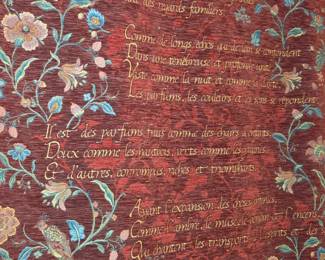 des regards familiers.
Comme de longs échos qui de loin se confondent
Dans une ténébreuse et profonde unité,
Vaste comme la nuit et comme la clarté,
Les parfums, les couleurs et les sons se répondent.
Il est des parfums frais comme des chairs d'enfants,
Doux comme les hautbois, verts comme les prairies,
Et d'autres, corrompus, riches et triomphants,
Ayant l'expansion des choses infinies,
Comme l'ambre, le musc, le benjoin et l'encens,
Qui chantent les transports esprits et des